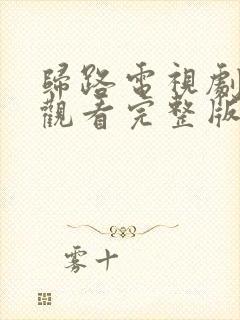 歸路電視劇
觀看完整版
雾十